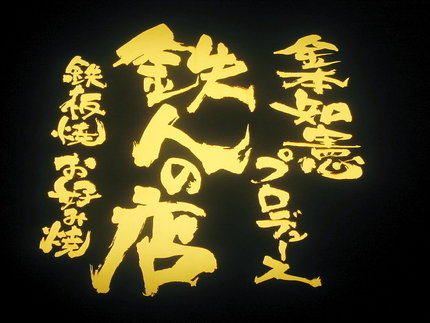 金本知憲
プロデュース
鉄人の店
鉄板焼
お好み焼